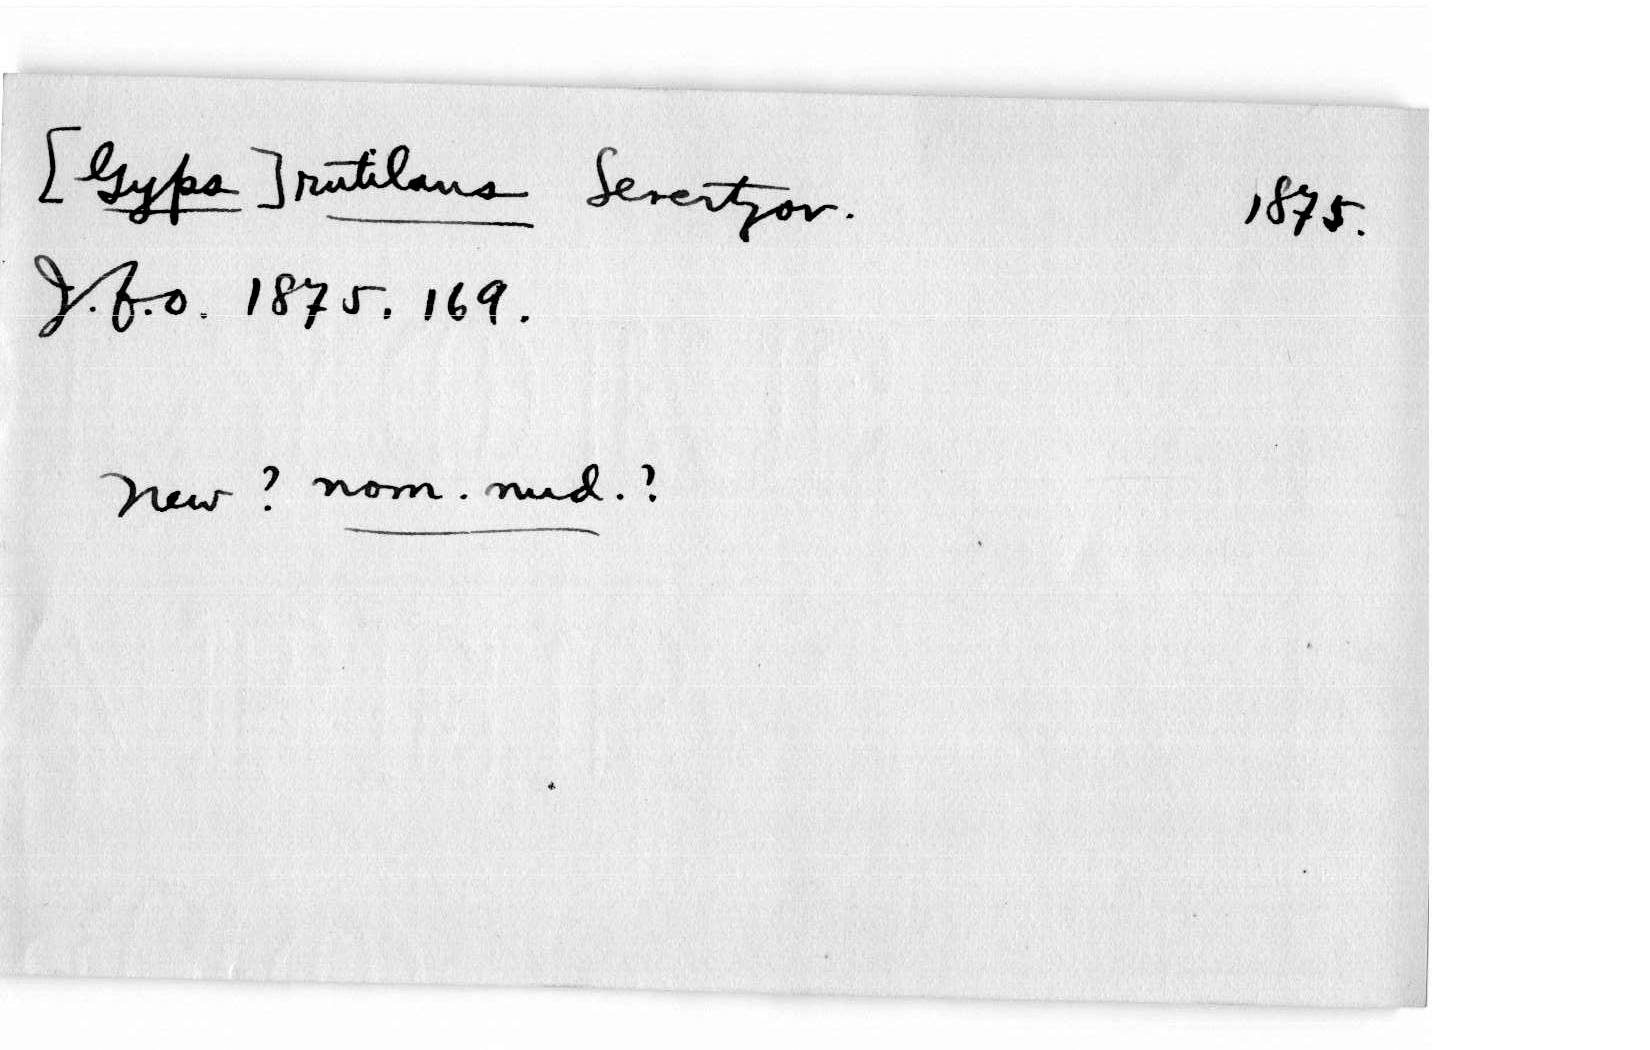 [Gyps] rutilans Severtzov. 1875.
J.f.O. 1875. 169.
New? nom. nud.?